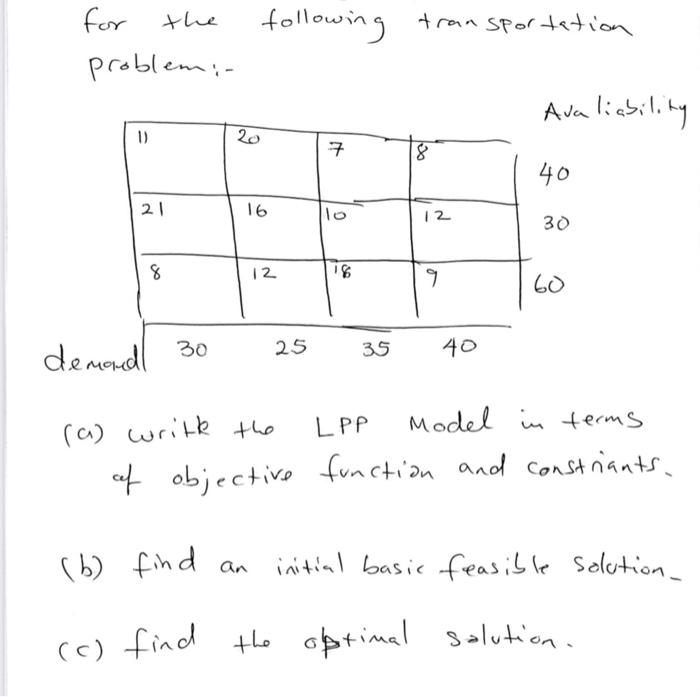 for the following transportation
problem:-
Avaliability
11 20 7 8 40
21 16 10 12 30
8 12 18 9 60
demand 30 25 35 40
(a) writk the LPP Model in terms
of objective function and constriants.
(b) find an initial basic feasible solution.
(c) find the optimal solution.